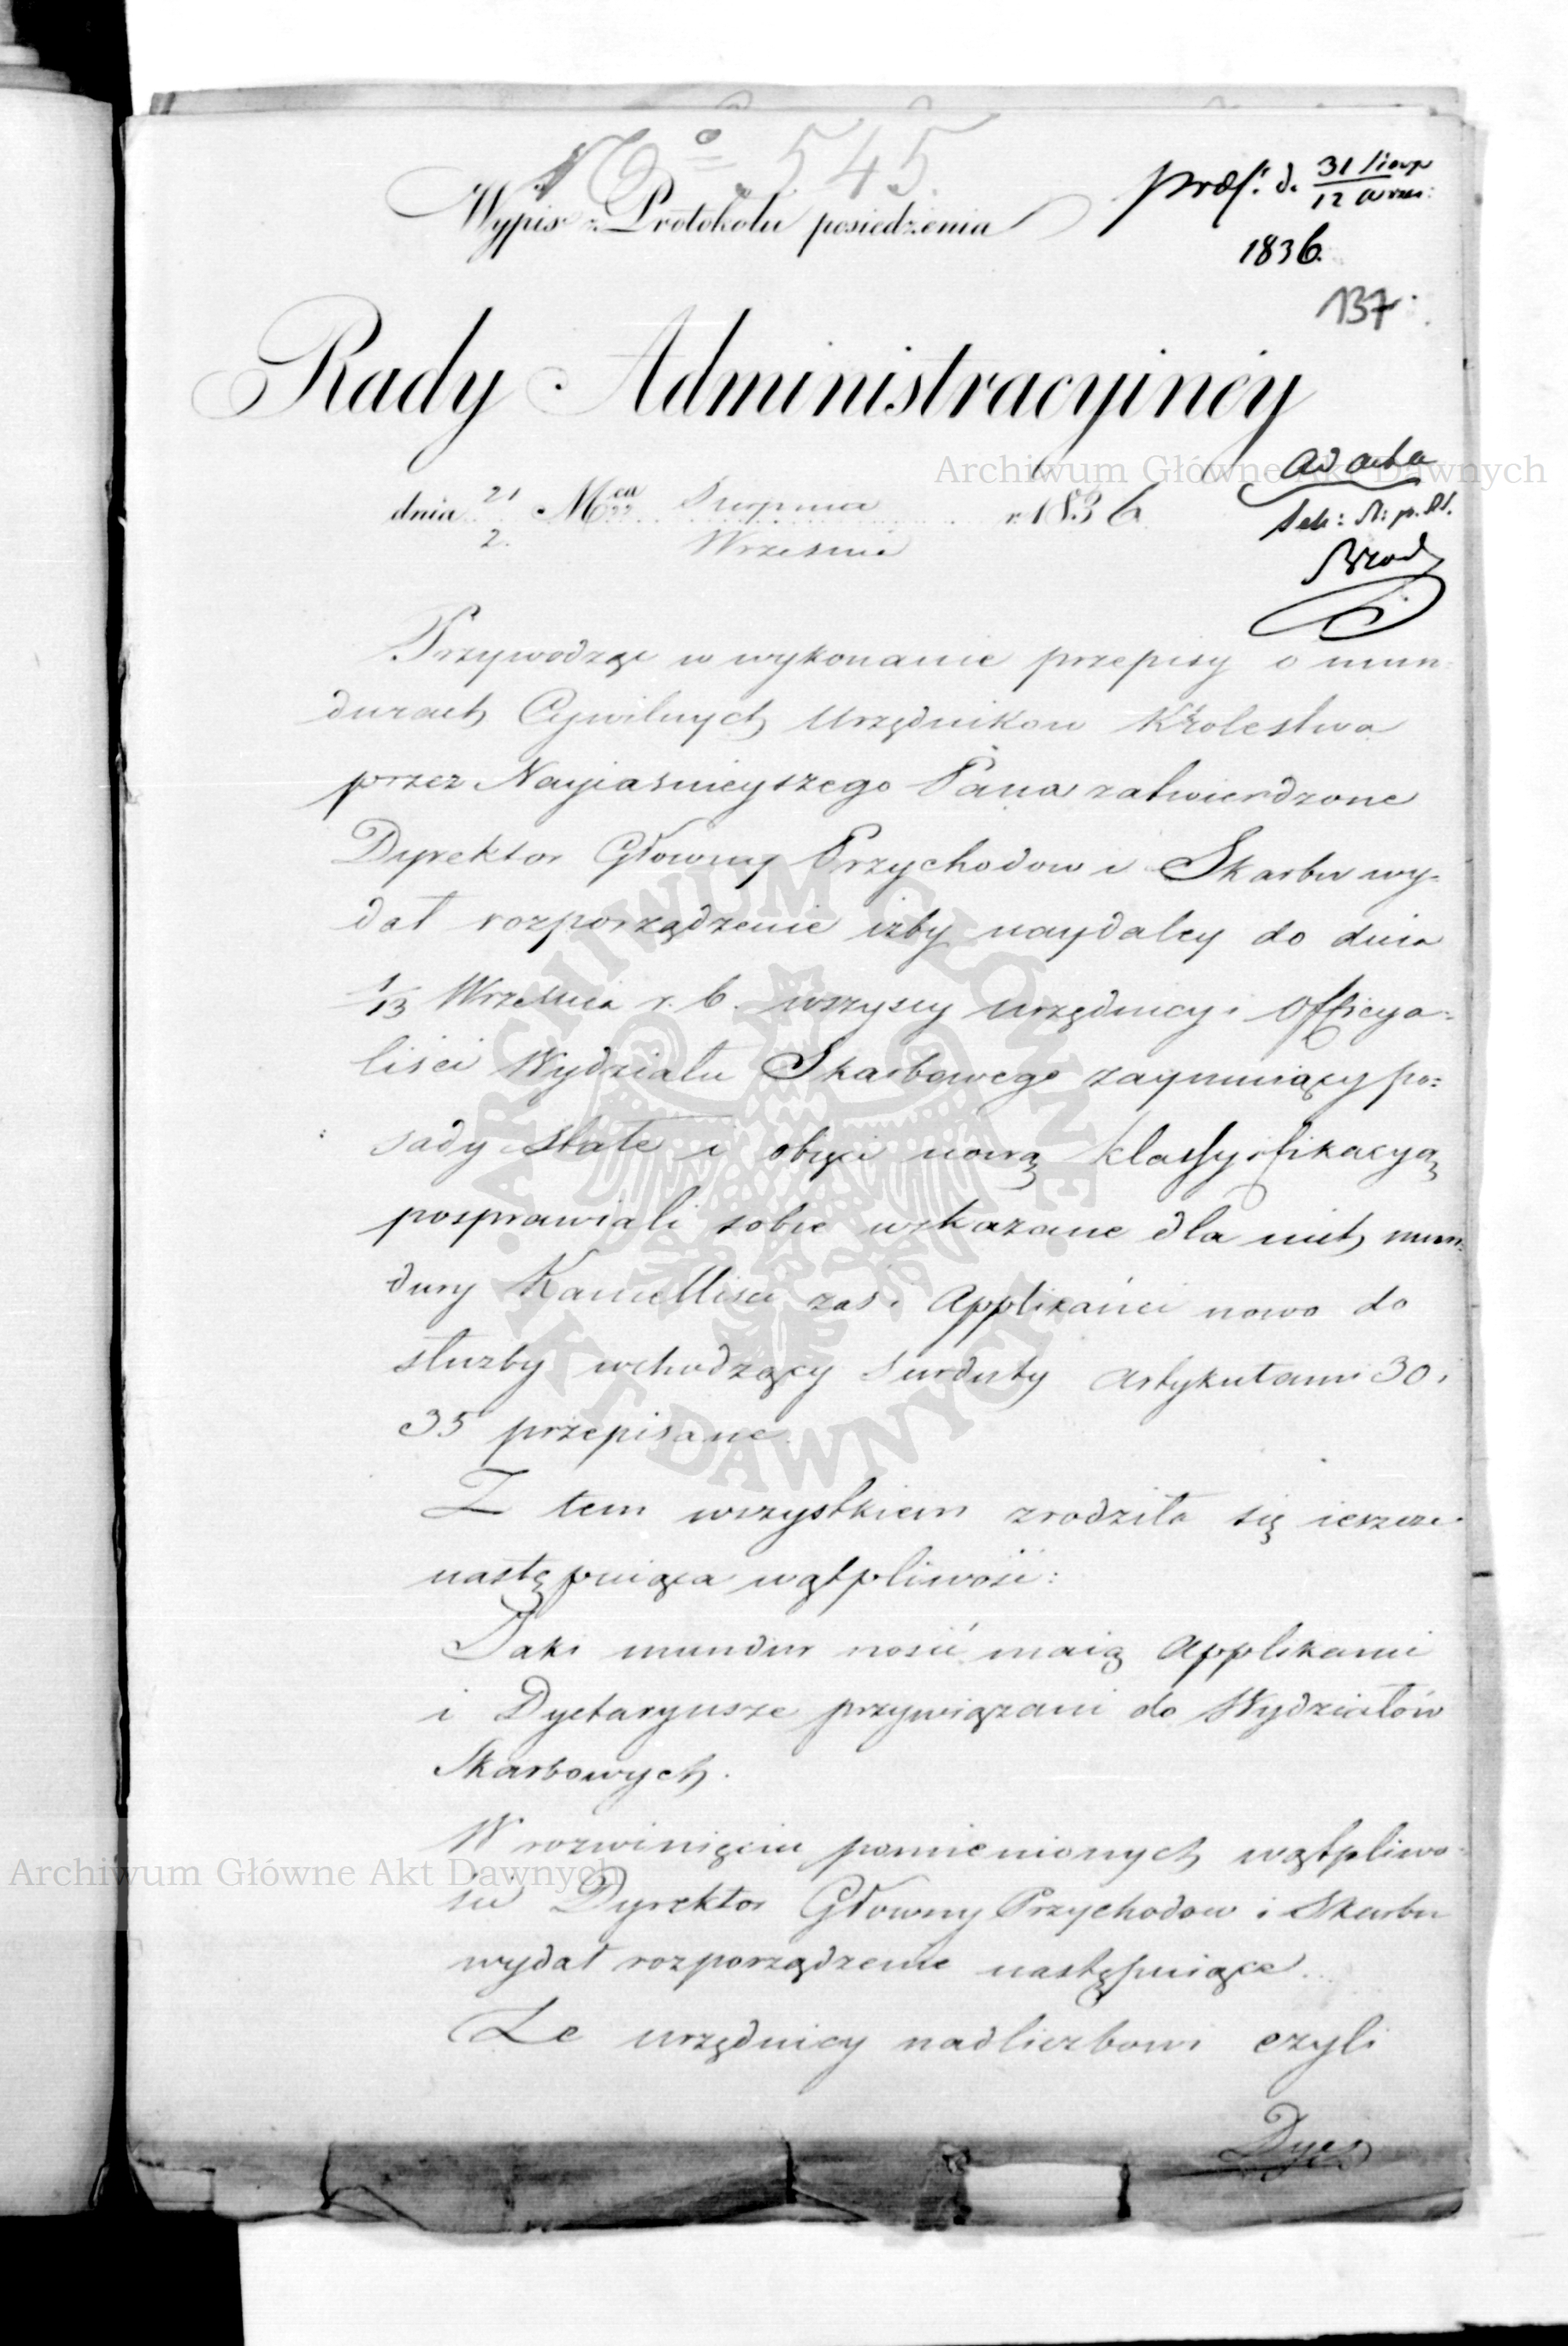 No 545.
Wypis z Protokołu posiedzenia
præs: d. 31 sierp / 12 wrze:
1836.
137.
Rady Administracyiney
ad acta
dnia 21 / 2. Mca Sierpnia / Września r. 1836
Przywodząc w wykonanie przepisy o mun-
durach Cywilnych Urzędnikow Krolestwa
przez Nayiaśnieyszego Pana zatwierdzone
Dyrektor Głowny Przychodow i Skarbu wy-
dał rozporządzenie iżby naydaley do dnia
1/13 Września r. b. wszyscy urzędnicy i Officya-
liści Wydziału Skarbowego zaymuiący po-
sady stałe i obięci nową klassyfikacyą
posprawiali sobie wskazane dla nich mun-
dury Kancellisci zaś i Applikańci nowo do
służby wchodzący surduty artykułami 30 i
35 przepisane.
Z tem wszystkiem zrodziła się ieszcze
następuiąca wątpliwość:
Jaki mundur nosić maią Applikanci
i Dyetaryusze przywiązani do Wydziałów
Skarbowych.
W rozwinięciu pomienionych wątpliwo-
ści Dyrektor Głowny Przychodow i Skarbu
wydał rozporządzenie następuiące.
Że urzędnicy nadliczbowi czyli
Dye
Archiwum Główne Akt Dawnych
Archiwum Główne Akt Dawnych
ARCHIWUM GŁÓWNE AKT DAWNYCH